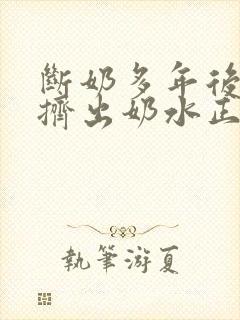 斷奶多年後
擠出奶水正
執筆游夏